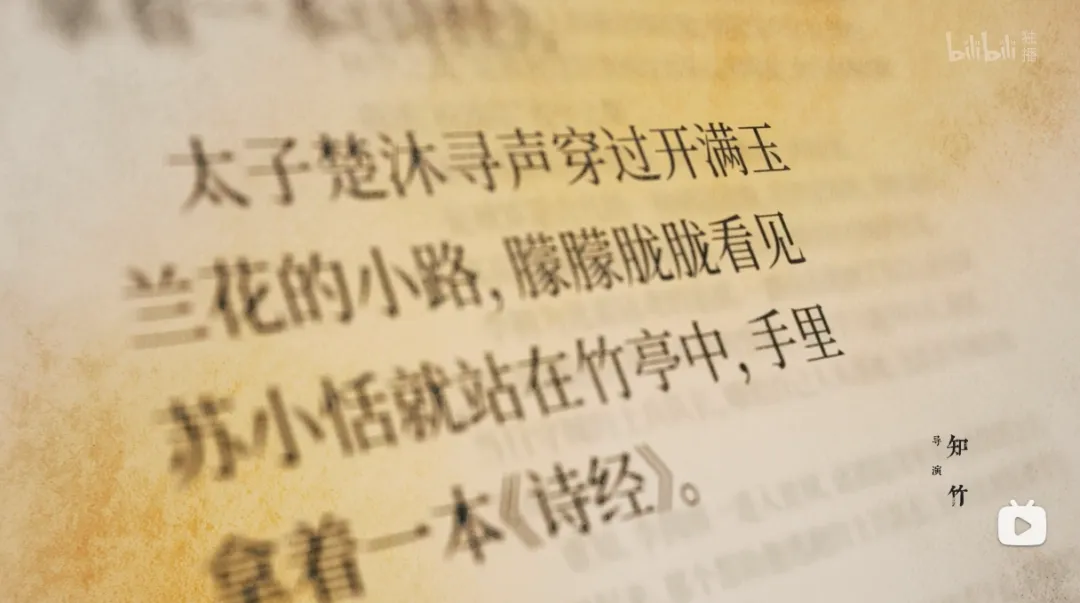 bilibili 独播
太子楚沐寻声穿过开满玉
兰花的小路，朦朦胧胧看见
苏小恬就站在竹亭中，手里
拿着一本《诗经》。
导演
知竹